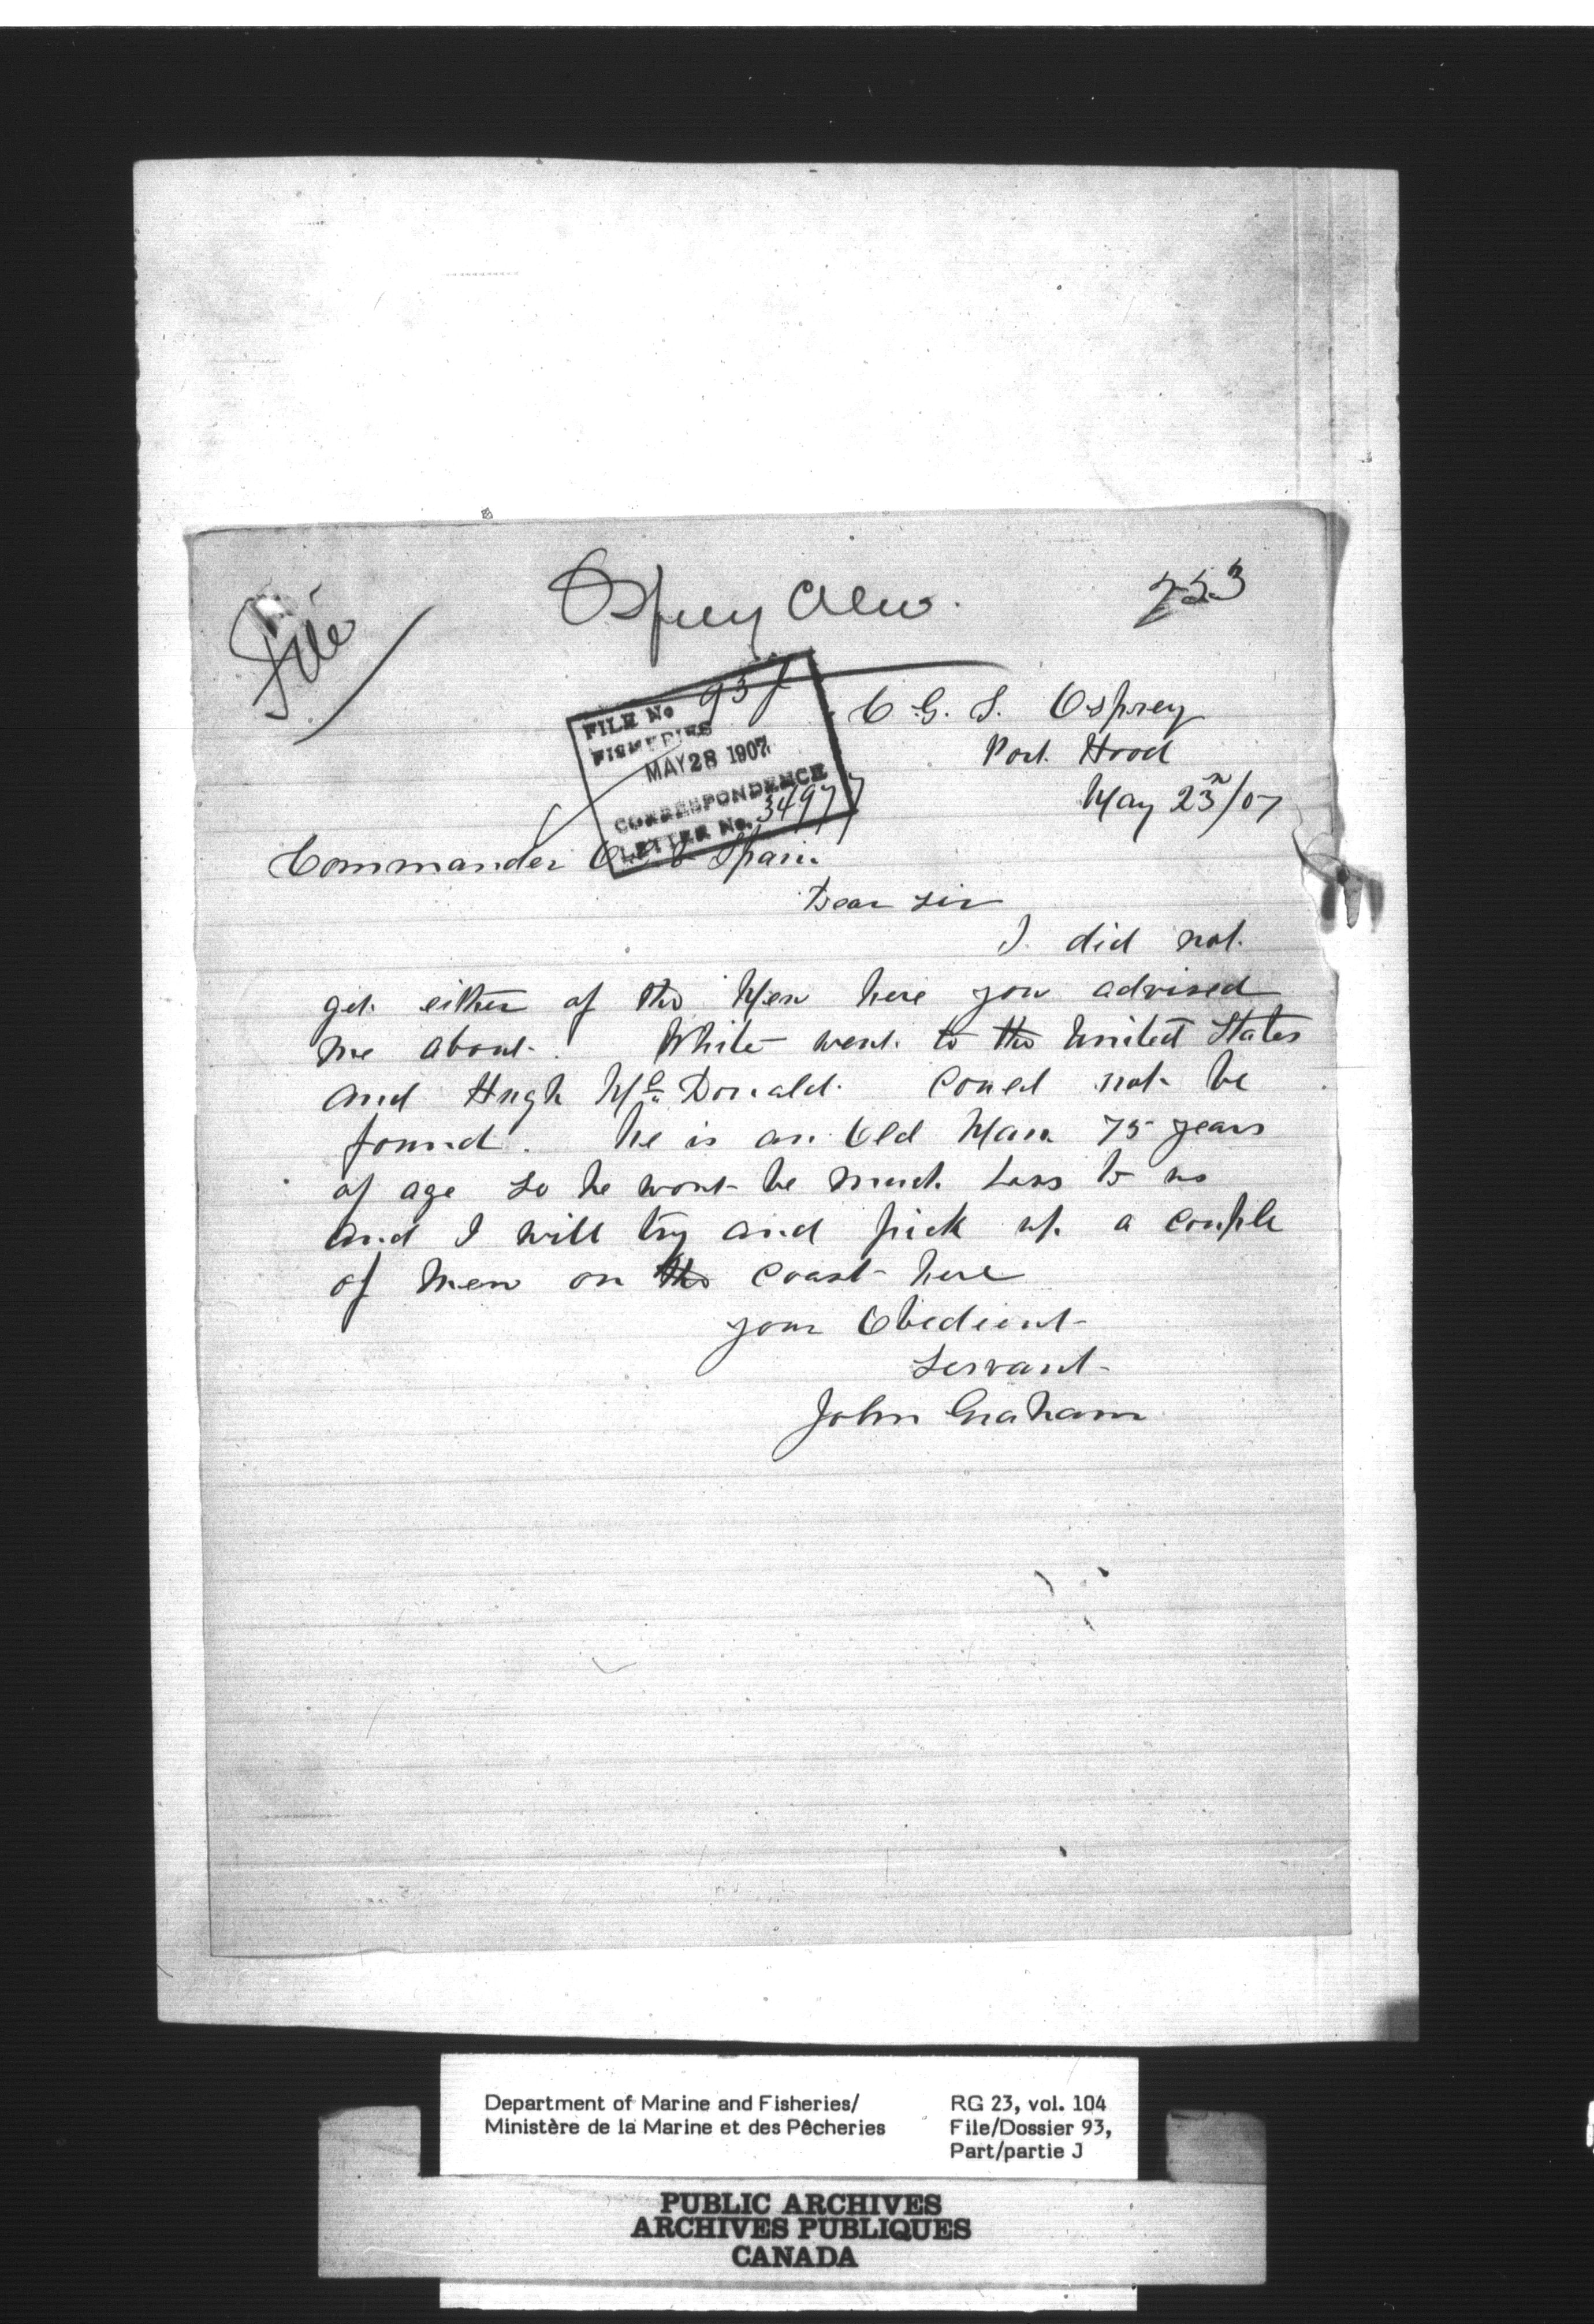 File
Osprey Crew.
253
FILE No 93 J
FISHERIES
MAY 28 1907
CORRESPONDENCE
LETTER No. 34977
C G. S. Osprey
Port Hood
May 23/07
Commander Spain
Dear Sir
I did not
get either of the Men here you advised
me about. White went to the United States
and Hugh McDonald Could not be
found. he is an Old Man 75 years
of age so he wont be much Loss to us
and I will try and pick up a couple
of Men on the Coast here
your Obedient
Servant
John Graham
Department of Marine and Fisheries/
Ministère de la Marine et des Pêcheries
RG 23, vol. 104
File/Dossier 93,
Part/partie J
PUBLIC ARCHIVES
ARCHIVES PUBLIQUES
CANADA